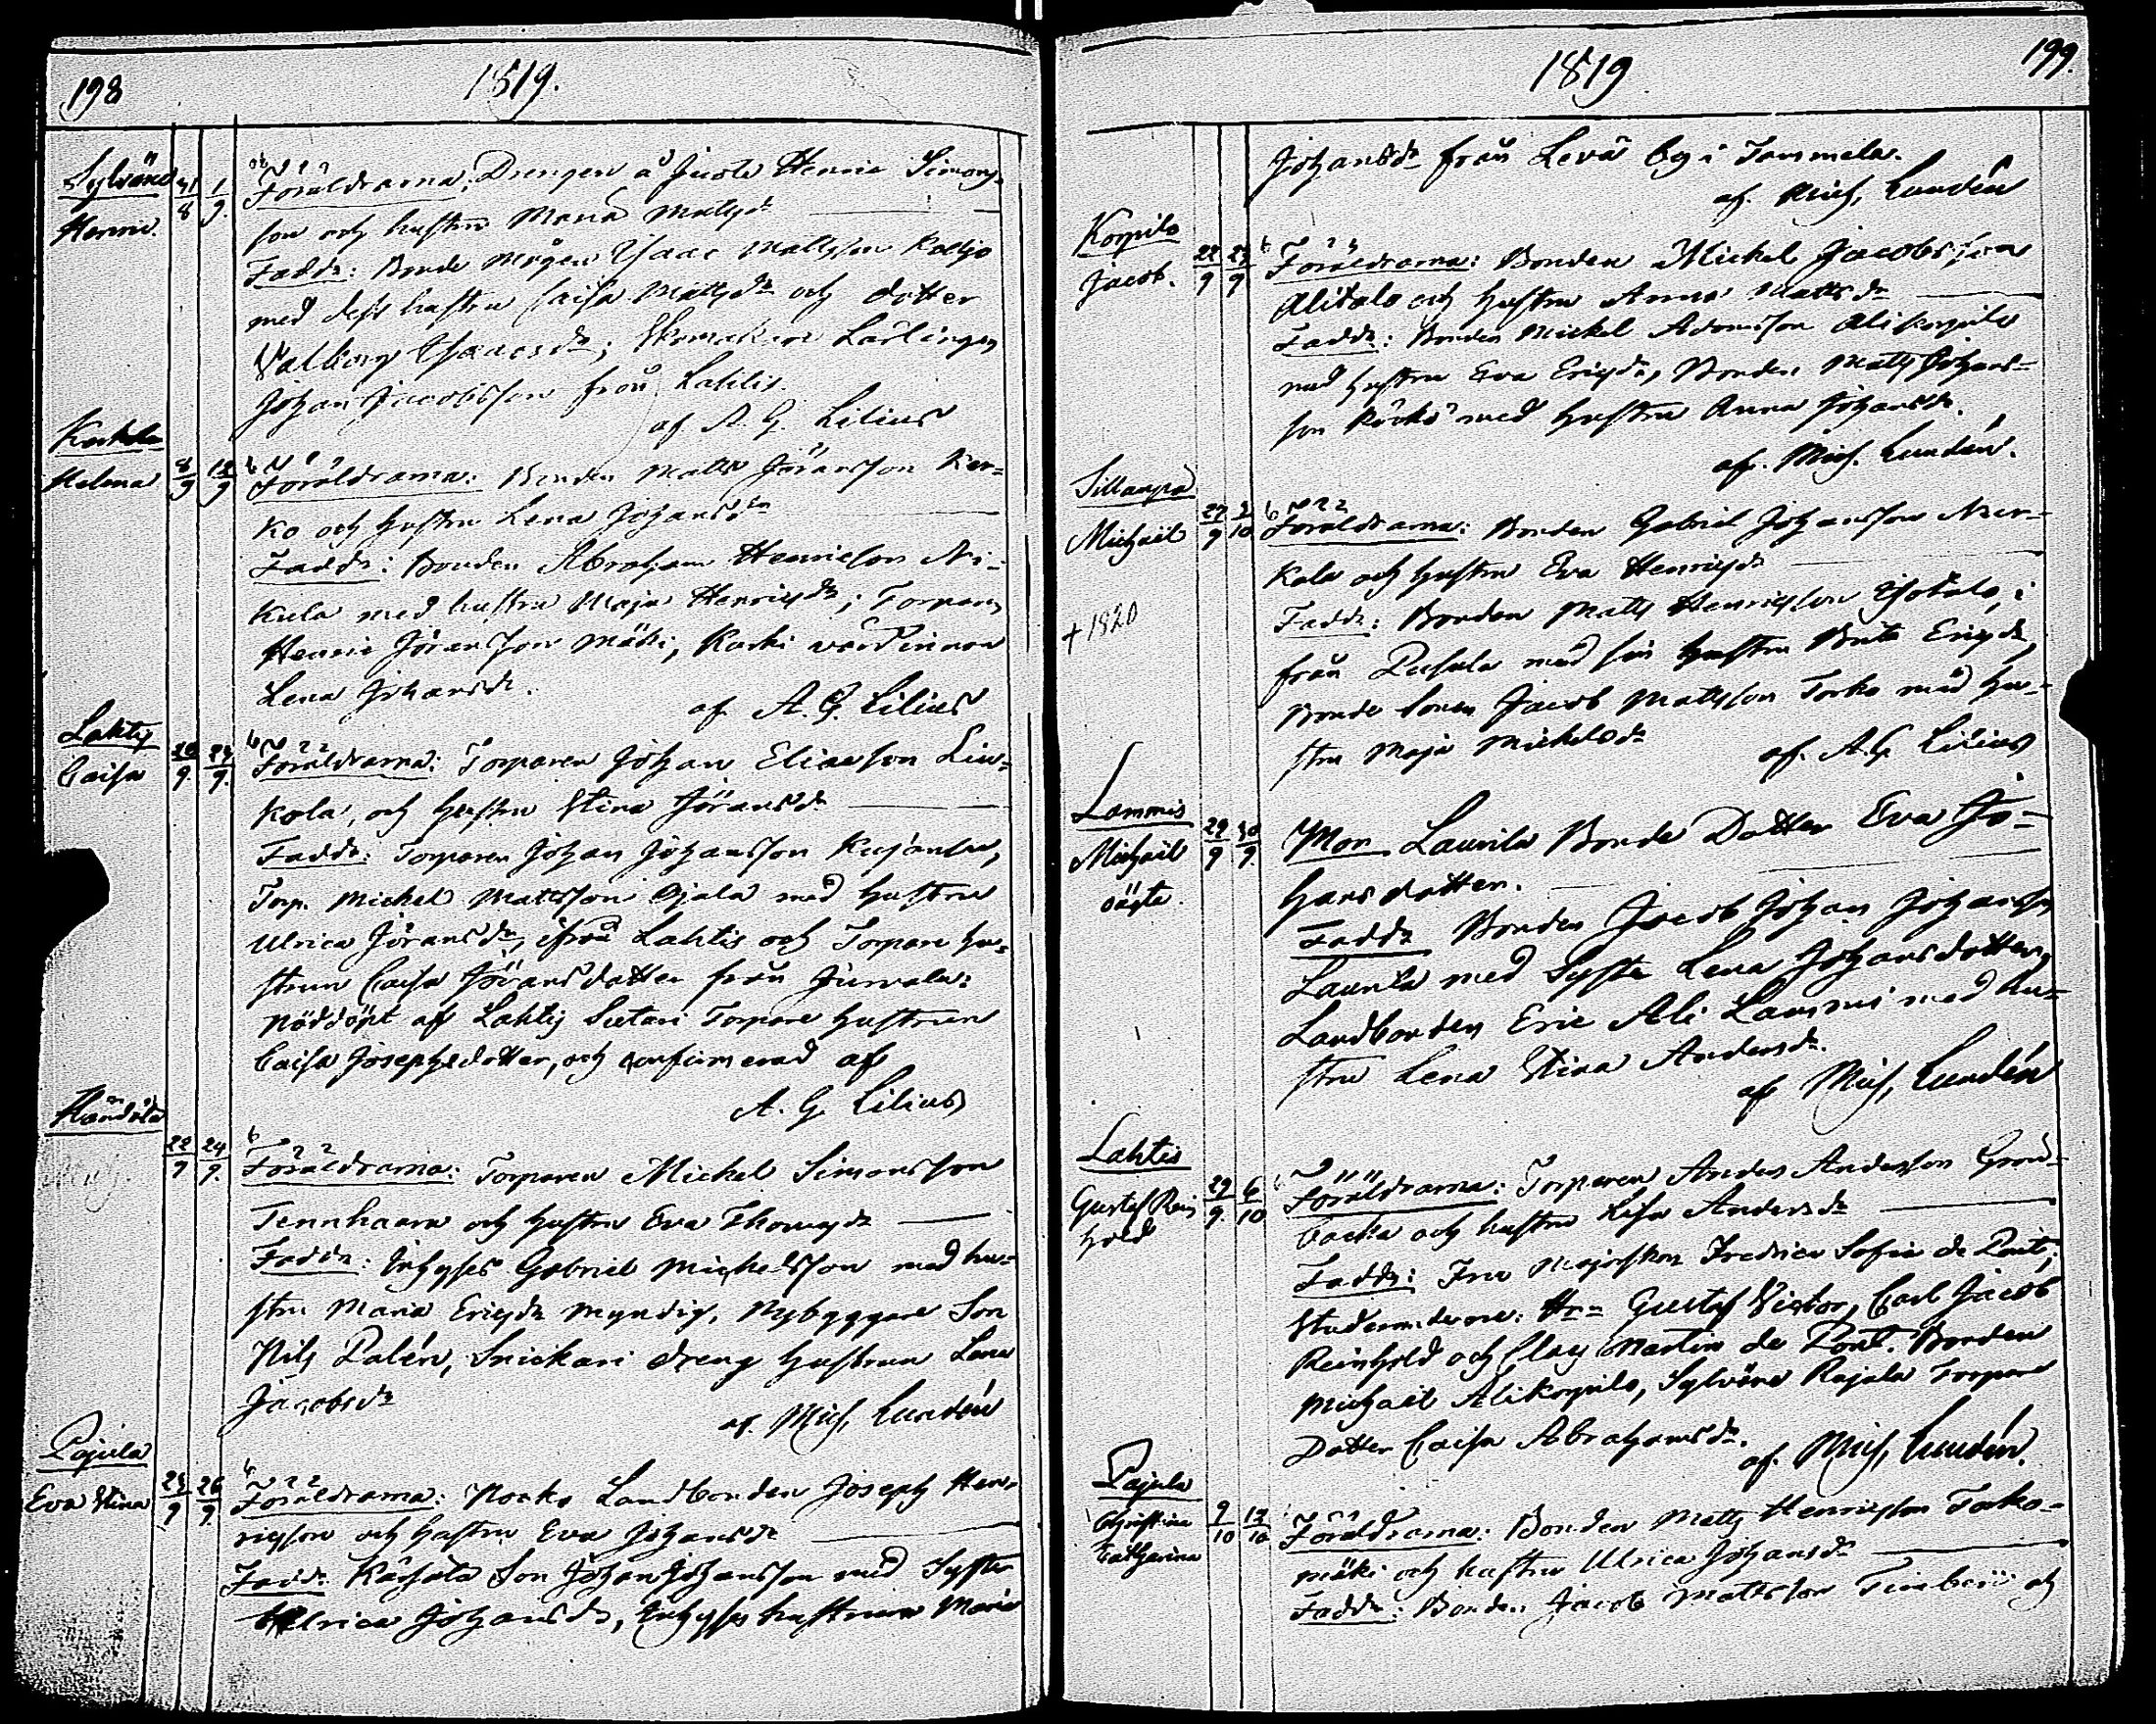 198
1819.
Sylvänä
Henric.
31/8
1/9.
Föräldrarna: Drengen å Juote Henric Simons-
son och hustru Maria Mattsdr
Faddr: Bonde Mågen Isaac Mattsson
med dess hustru Caisa Mattsdr och dotter
Valborg Isaacsdr; Skomakare Lärlingen
Johan Jacobsson från Lahtis.
af A. G. Lilius
Helena
8/9
12/9
Föräldrarna: Bonden Matts Jöransson Ker-
ko och hustru Lena Johansdr
Faddr: Bonden Abraham Henricsson Ni-
kula med hustru Maja Henricsdr; Torparen
Henric Jöransson Mäki, Karki värdinnan
Lena Johansdr.
af A. G. Lilius
Lahtis
Caisa
20/9
24/9.
Föräldrarna: Torparen Johan Eliasson Liu-
kola, och hustru Stina Jöransdr
Faddr: Torparen Johan Johansson Kujanen,
Torp. Michel Mattsson Ojala med hustru
Ulrica Jöransdr, ifrån Lahtis och Torpare hu-
strun Caisa Jöransdotter från Jurvala:
nöddöpt af Lahtis Suutari Torpare hustrun
Caisa Josephsdotter, och confirmerad af
A. G. Lilius
Händölä
22/9
24/9.
Föräldrarna: Torparen Michel Simonsson
Tennhaara och hustru Eva Thomasdr
Faddr: Inhyses Gabriel Michelsson med hu-
stru Maria Ericsdr Myndig, Nybyggare Son
Nils Palén, Snickari dreng hustrun Lena
Jacobsdr
af. Mich. Lundén
Pajula
Eva Stina
25/9
26/9.
Föräldrarna: Nocko Landbonden Joseph Hen-
ricsson och hustru Eva Johansdr
Faddr. Kärsata Son Johan Johansson med Syster
Ulrica Johansdr, Inhyses hustrun Maria
1819
199.
Johansdr från Levä by i Tammela.
af. Mich. Lundén
Korpila
Jacob.
22/9
23/9
Föräldrarna: Bonden Michel Jacobsson
Alitalo och hustru Anna Mattsdr
Faddr: Bonden Michel Adamsson Alikorpila
med hustru Eva Ericsdr, Bonden Matts Johans-
son Köckö med hustru Anna Johansdr.
af. Mich. Lundén.
Sillanpä
Michaël
+ 1820
27/9
2/10
Föräldrarna: Bonden Gabriel Johansson Nur-
kala och hustru Eva Henricsdr
Faddr: Bonden Matts Henricsson Isotalo,
från Pusula med sin hustru Brita Ericsdr,
Bonde Sonen Jacob Mattsson Torko med hu-
stru Maja Michelsdr
af. A. G. Lilius
Lammis
Michaël
oägta.
29/9
30/9
Mor Laurila Bonde Dotter Eva Jo-
hansdotter.
Faddr Bonden Jacob Johan Johansson
Laurila med Syster Lena Johansdotter,
Landbonden Eric Ali Lammi med hu-
stru Lena Stina Andersdr.
af Mich. Lundén
Lahtis
Gustaf Rein
hold
29/9.
6/10
Föräldrarna: Torparen Anders Andersson Grön-
backa och hustru Lisa Andersdr
Faddr: Fru Majorskan Fredrica Sofia de Pont;
Studeranderne: Hrr Gustaf Victor, Carl Jacob
Reinhold och Clas Martin de Pont. Bonden
Michaël Alikorpila, Sylvänä Rajala Torpare
Dotter Caisa Abrahamsdr.
af. Mich. Lundén.
Pajula
Christina
Catharina
9/10
13/10
Föräldrarna: Bonden Matts Henricsson Torko-
mäki och hustru Ulrica Johansdr
Faddr: Bonden Jacob Mattsson och